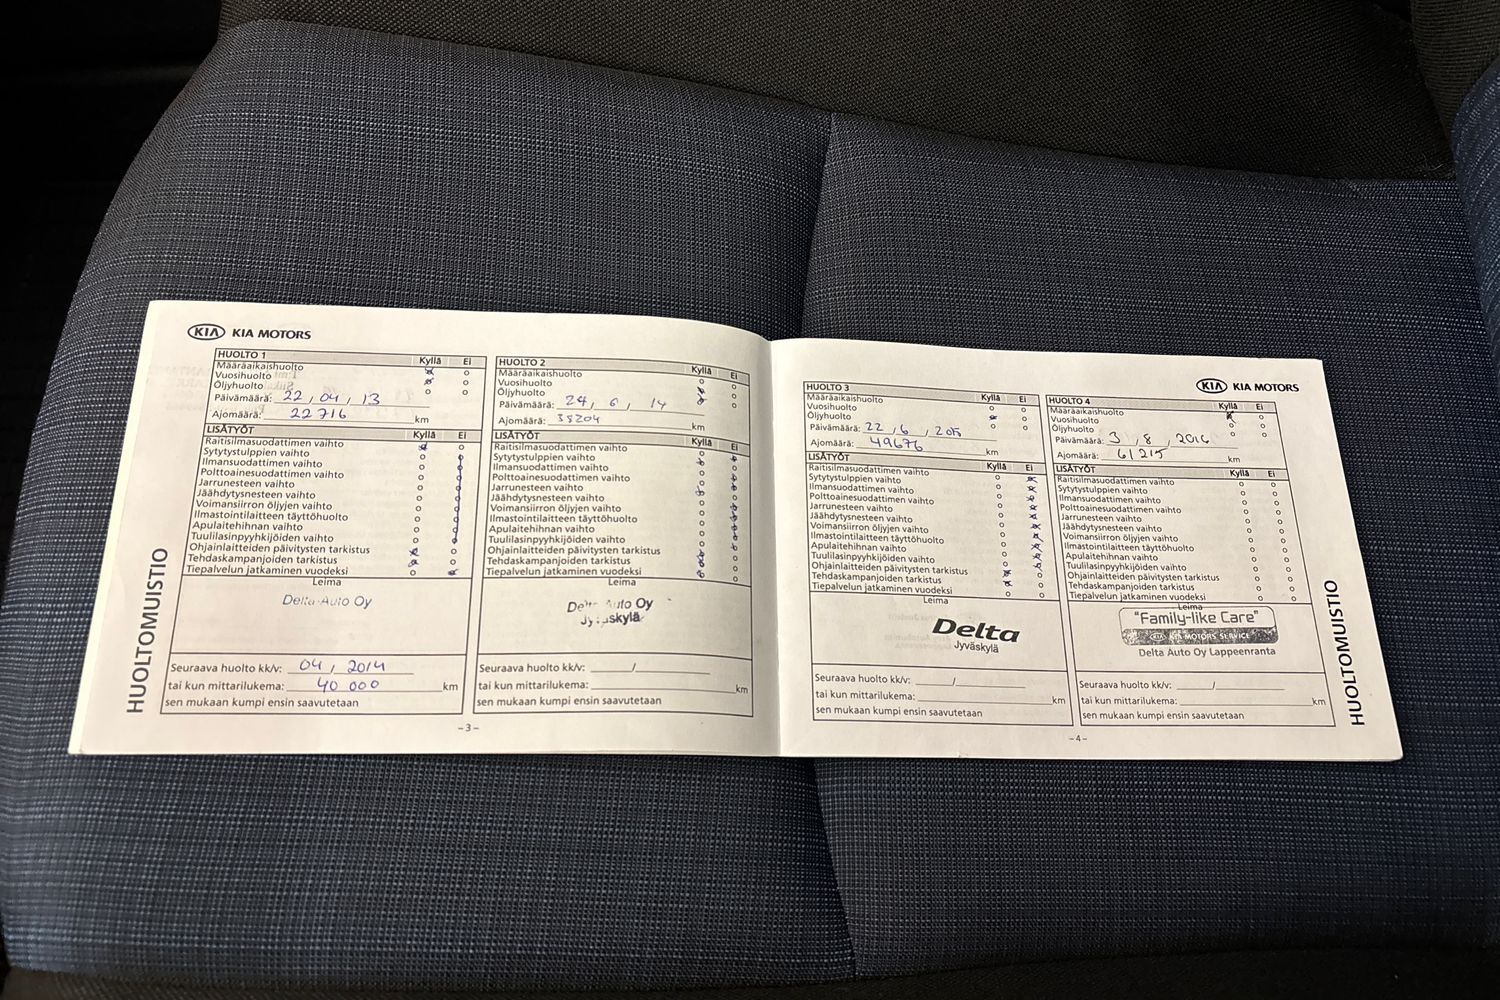 KIA KIA MOTORS
HUOLTOMUISTIO
HUOLTO 1 Kyllä Ei
Määräaikaishuolto
Vuosihuolto
Öljyhuolto
Päivämäärä: 22 , 04 , 13
Ajomäärä: 22716 km
LISÄTYÖT Kyllä Ei
Raitisilmasuodattimen vaihto
Sytytystulppien vaihto
Ilmansuodattimen vaihto
Polttoainesuodattimen vaihto
Jarrunesteen vaihto
Jäähdytysnesteen vaihto
Voimansiirron öljyjen vaihto
Ilmastointilaitteen täyttöhuolto
Apulaitehihnan vaihto
Tuulilasinpyyhkijöiden vaihto
Ohjainlaitteiden päivitysten tarkistus
Tehdaskampanjoiden tarkistus
Tiepalvelun jatkaminen vuodeksi
Leima
Delta-Auto Oy
Seuraava huolto kk/v: 04 / 2014
tai kun mittarilukema: 40 000 km
sen mukaan kumpi ensin saavutetaan
HUOLTO 2 Kyllä Ei
Määräaikaishuolto
Vuosihuolto
Öljyhuolto
Päivämäärä: 24 , 6 , 14
Ajomäärä: 38204 km
LISÄTYÖT Kyllä Ei
Raitisilmasuodattimen vaihto
Sytytystulppien vaihto
Ilmansuodattimen vaihto
Polttoainesuodattimen vaihto
Jarrunesteen vaihto
Jäähdytysnesteen vaihto
Voimansiirron öljyjen vaihto
Ilmastointilaitteen täyttöhuolto
Apulaitehihnan vaihto
Tuulilasinpyyhkijöiden vaihto
Ohjainlaitteiden päivitysten tarkistus
Tehdaskampanjoiden tarkistus
Tiepalvelun jatkaminen vuodeksi
Leima
Auto Oy
Jyväskylä
Seuraava huolto kk/v: /
tai kun mittarilukema: km
sen mukaan kumpi ensin saavutetaan
-3-
KIA KIA MOTORS
HUOLTO 3 Kyllä Ei
Määräaikaishuolto
Vuosihuolto
Öljyhuolto
Päivämäärä: 22 , 6 ,
Ajomäärä: 49676 km
LISÄTYÖT Kyllä Ei
Raitisilmasuodattimen vaihto
Sytytystulppien vaihto
Ilmansuodattimen vaihto
Polttoainesuodattimen vaihto
Jarrunesteen vaihto
Jäähdytysnesteen vaihto
Voimansiirron öljyjen vaihto
Ilmastointilaitteen täyttöhuolto
Apulaitehihnan vaihto
Tuulilasinpyyhkijöiden vaihto
Ohjainlaitteiden päivitysten tarkistus
Tehdaskampanjoiden tarkistus
Tiepalvelun jatkaminen vuodeksi
Leima
Delta
Jyväskylä
Seuraava huolto kk/v: /
tai kun mittarilukema: km
sen mukaan kumpi ensin saavutetaan
HUOLTO 4 Kyllä Ei
Määräaikaishuolto
Vuosihuolto
Öljyhuolto
Päivämäärä: 3 , 8 , 2016
Ajomäärä: 61215 km
LISÄTYÖT Kyllä Ei
Raitisilmasuodattimen vaihto
Sytytystulppien vaihto
Ilmansuodattimen vaihto
Polttoainesuodattimen vaihto
Jarrunesteen vaihto
Jäähdytysnesteen vaihto
Voimansiirron öljyjen vaihto
Ilmastointilaitteen täyttöhuolto
Apulaitehihnan vaihto
Tuulilasinpyyhkijöiden vaihto
Ohjainlaitteiden päivitysten tarkistus
Tehdaskampanjoiden tarkistus
Tiepalvelun jatkaminen vuodeksi
Leima
"Family-like Care"
KIA KIA MOTORS SERVICE
Delta Auto Oy Lappeenranta
Seuraava huolto kk/v: /
tai kun mittarilukema: km
sen mukaan kumpi ensin saavutetaan
HUOLTOMUISTIO
-4-